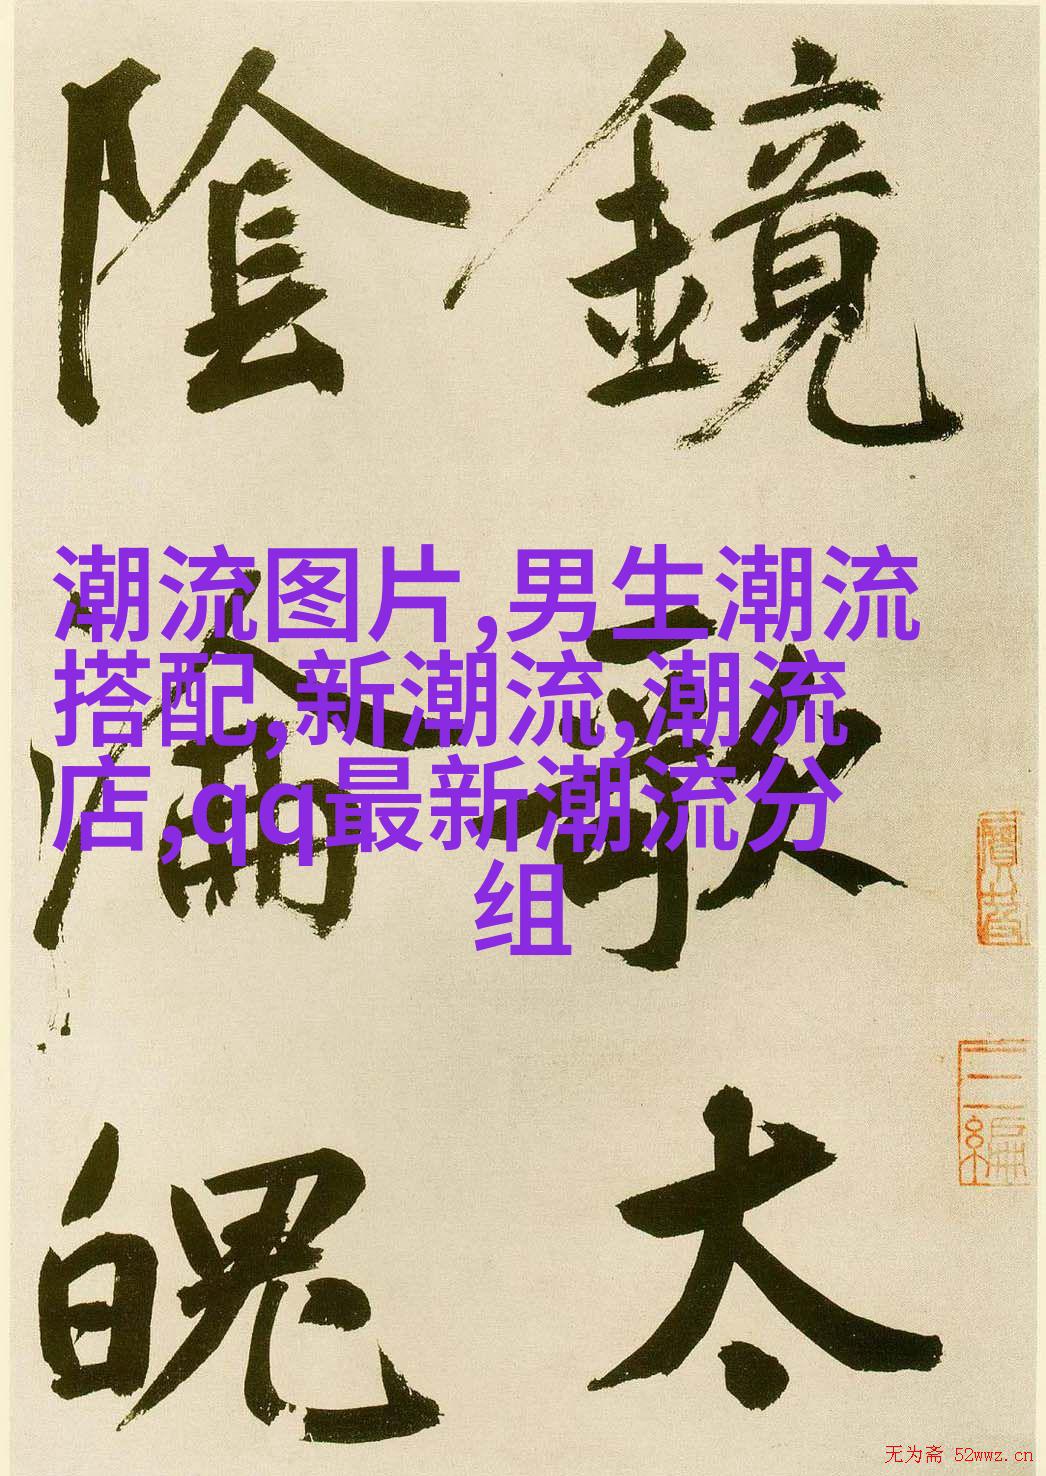 鏡
歌
太
陰
淪
魄
潮流图片,男生潮流
搭配,新潮流,潮流
店,qq最新潮流分
组
三編
无为斋 52wwz.cn